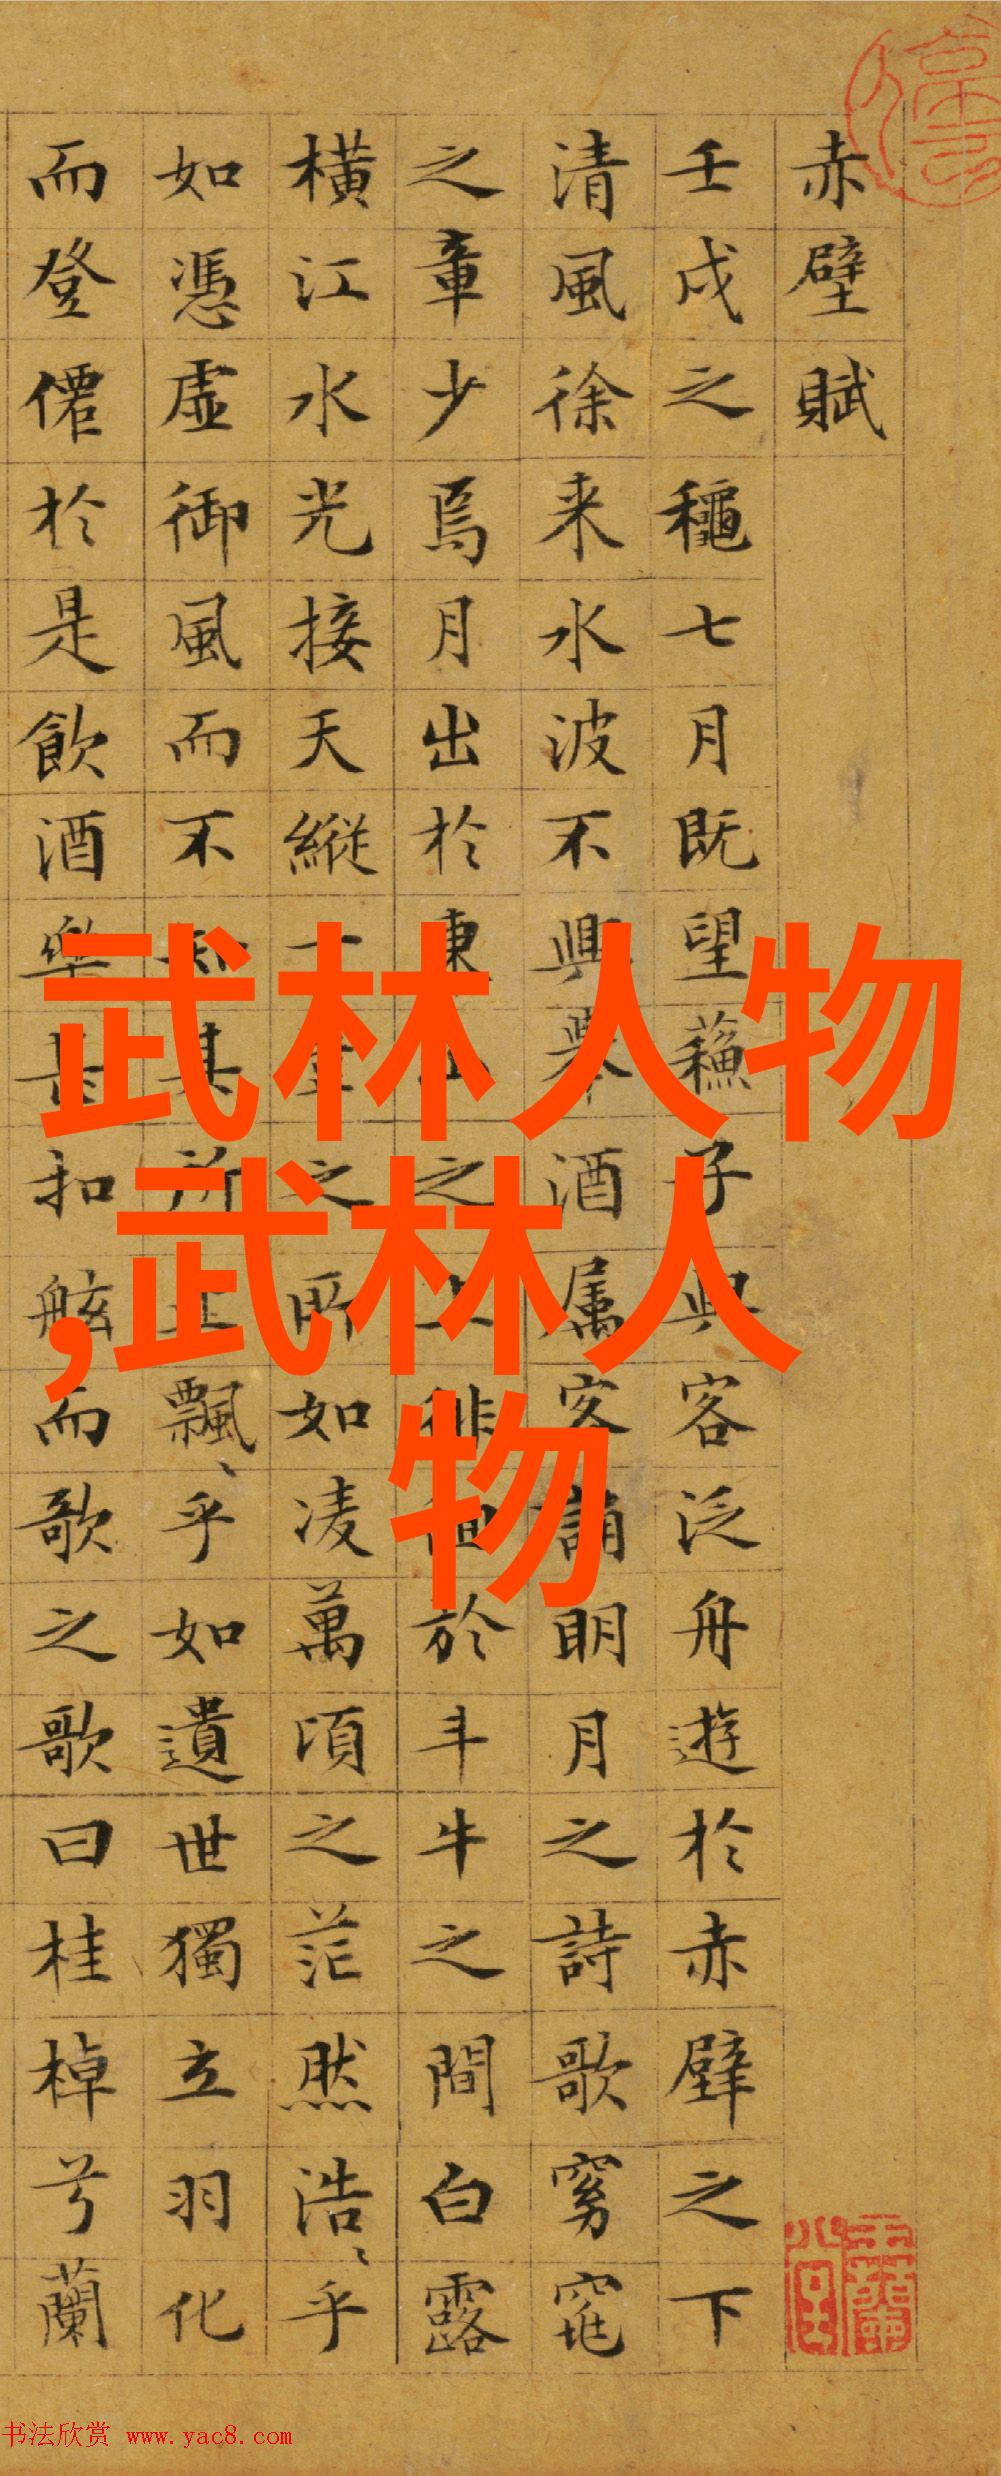 赤壁賦
壬戌之龝七月既望蘓子與客泛舟遊於赤壁之下
清風徐来水波不興舉酒属客誦明月之詩歌窈窕
之章少焉月出於東山之上徘徊於斗牛之間白露
橫江水光接天縱一葦之所如凌萬頃之茫然浩〻乎
如馮虛御風而不知其所止飄〻乎如遺世獨立羽化
而登僊於是飲酒樂甚扣舷而歌之歌曰桂棹兮蘭
武林人物
,武林人
物
书法欣赏 www.yac8.com